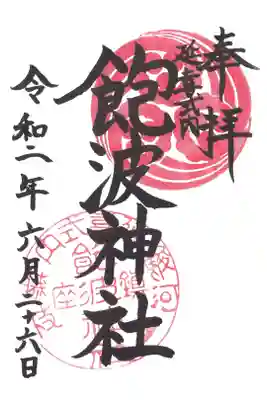 奉拝
延喜式内
飽波神社
令和二年六月二十六日